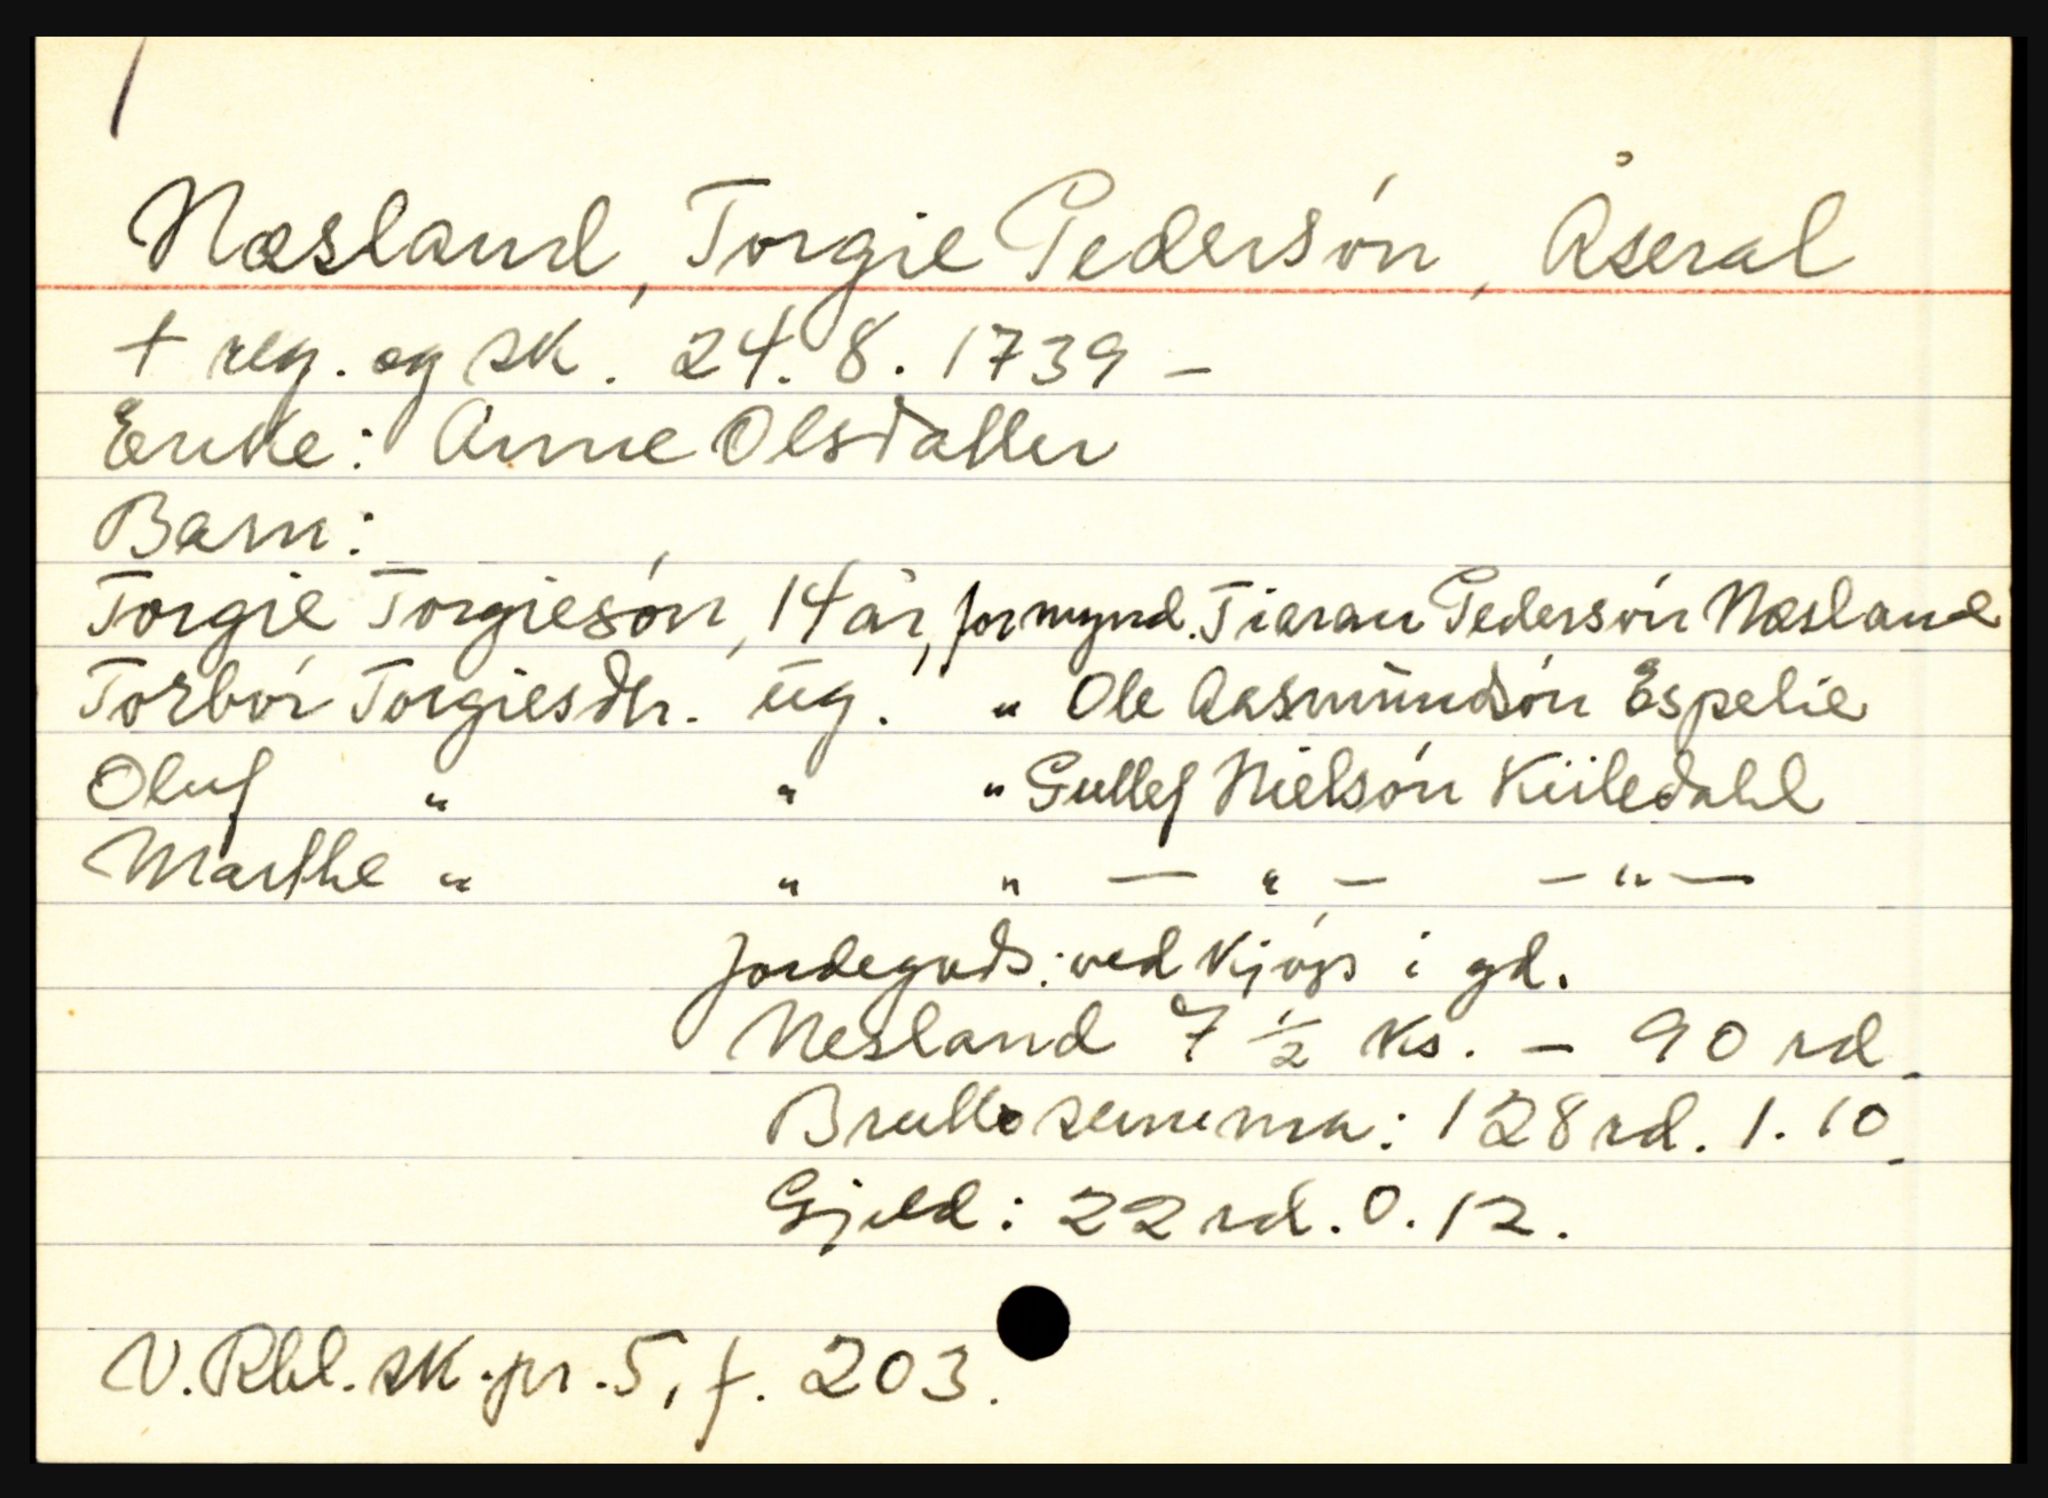 Næsland, Torgie Pedersón, Åseral
+ reg. og sk. 24.8.1739 –
Enke: Anne Olsdatter
Barn:
Torgie Torgiesón, 14 år, formynd. Tiaran Pedersón Næsland
Torbór Torgiesdtr. ug. " Ole Aasmundsón Espelie
Oluf " " " Gullef Nielsón Kiiledahl
Marthe " " " — " — — " —
Jordegods: ved kjóp i gd.
Nesland 7 ½ ks. – 90 rd.
Brutto summa: 128 rd. 1. 10.
Gjeld: 22 rd. 0. 12.
V. Rbl. sk. pr. 5, f. 203.